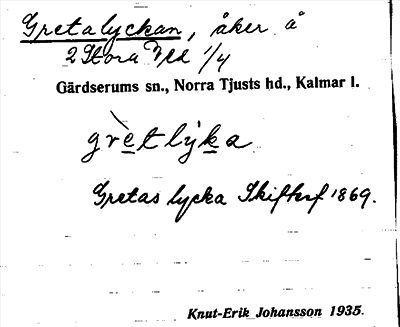 Gretalyckan, åker å
2 Stora Ved 1/4
Gärdserums sn., Norra Tjusts hd., Kalmar l.
grètlỳka
Gretas lycka Skiftesf 1869.
Knut-Erik Johansson 1935.